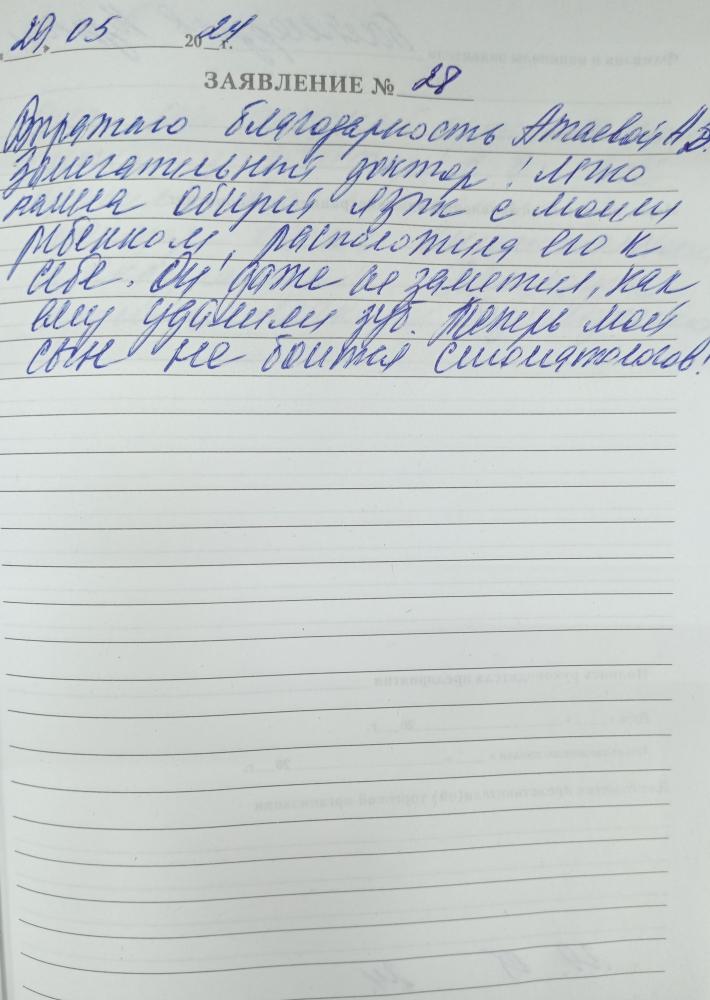 29. 05 2024 г.
ЗАЯВЛЕНИЕ № 28
Выражаю благодарность Атаевой А.В.
Замечательный доктор! Легко
нашла общий язык с моим
ребенком, расположила его к
себе. Он даже не заметил, как
ему удалили зуб. Теперь мой
сын не боится стоматологов!